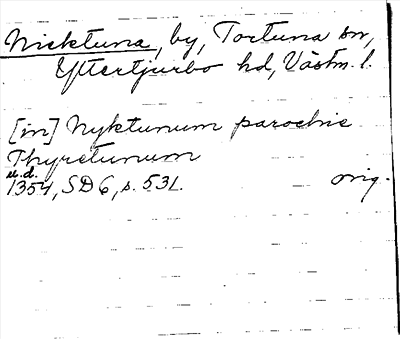 Nicktuna, by, Tortuna sn,
Yttertjurbo hd, Västm. l.
[in] Nyktunum parochie
Thyrctunum
u.d.
1354, SD 6, s. 531.
orig.